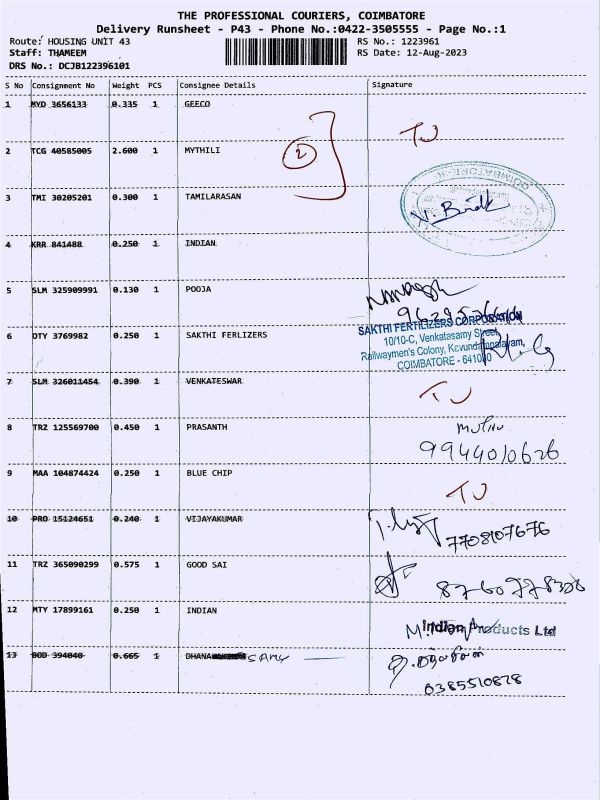 THE PROFESSIONAL COURIERS, COIMBATORE
Delivery Runsheet - P43 - Phone No.:0422-3505555 - Page No.:1
Route: HOUSING UNIT 43 RS No.: 1223961
Staff: THAMEEM RS Date: 12-Aug-2023
DRS No.: DCJB122396101
S No Consignment No Weight PCS Consignee Details Signature
1 MYD 3656133 0.335 1 GEECO
TJ
2 TCG 40585005 2.600 1 MYTHILI
2
3 TMI 30205201 0.300 1 TAMILARASAN
COIMBATORE
4 KRR 841488 0.250 1 INDIAN
5 SLM 325909991 0.130 1 POOJA
6 DTY 3769982 0.250 1 SAKTHI FERLIZERS
SAKTHI FERTILIZERS CORPORATION
10/10-C, Venkatasamy Street,
Railwaymen's Colony, Kavundampalayam,
COIMBATORE - 641030
7 SLM 326011454 0.390 1 VENKATESWAR
TJ
8 TRZ 125569700 0.450 1 PRASANTH
9944010626
9 MAA 104874424 0.250 1 BLUE CHIP
TJ
10 PRO 15124651 0.240 1 VIJAYAKUMAR
7708107676
11 TRZ 365090299 0.575 1 GOOD SAI
12 MTY 17899161 0.250 1 INDIAN
Indian Products Ltd
13 BOD 394040 0.665 1 DHANA SAMY
6385510828